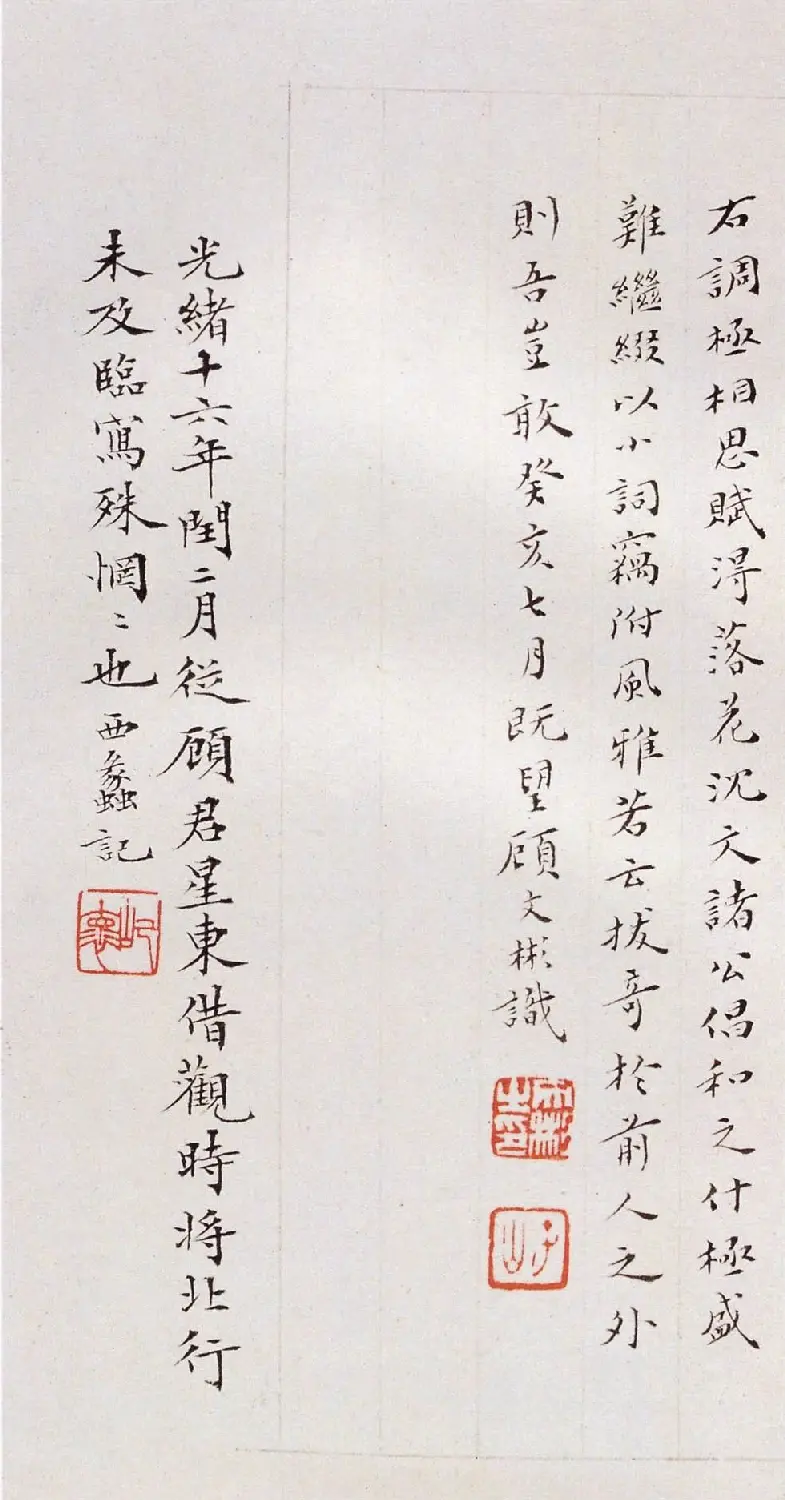 右調極相思賦得落花沈文諸公倡和之什極盛
難繼綴以小詞竊附風雅若云拔奇於前人之外
則吾豈敢癸亥七月既望顧文彬識
文彬之印
子山
光緒十六年閏二月從顧君星東借觀時將北行
未及臨寫殊惘〻也西蠡記
屺懷